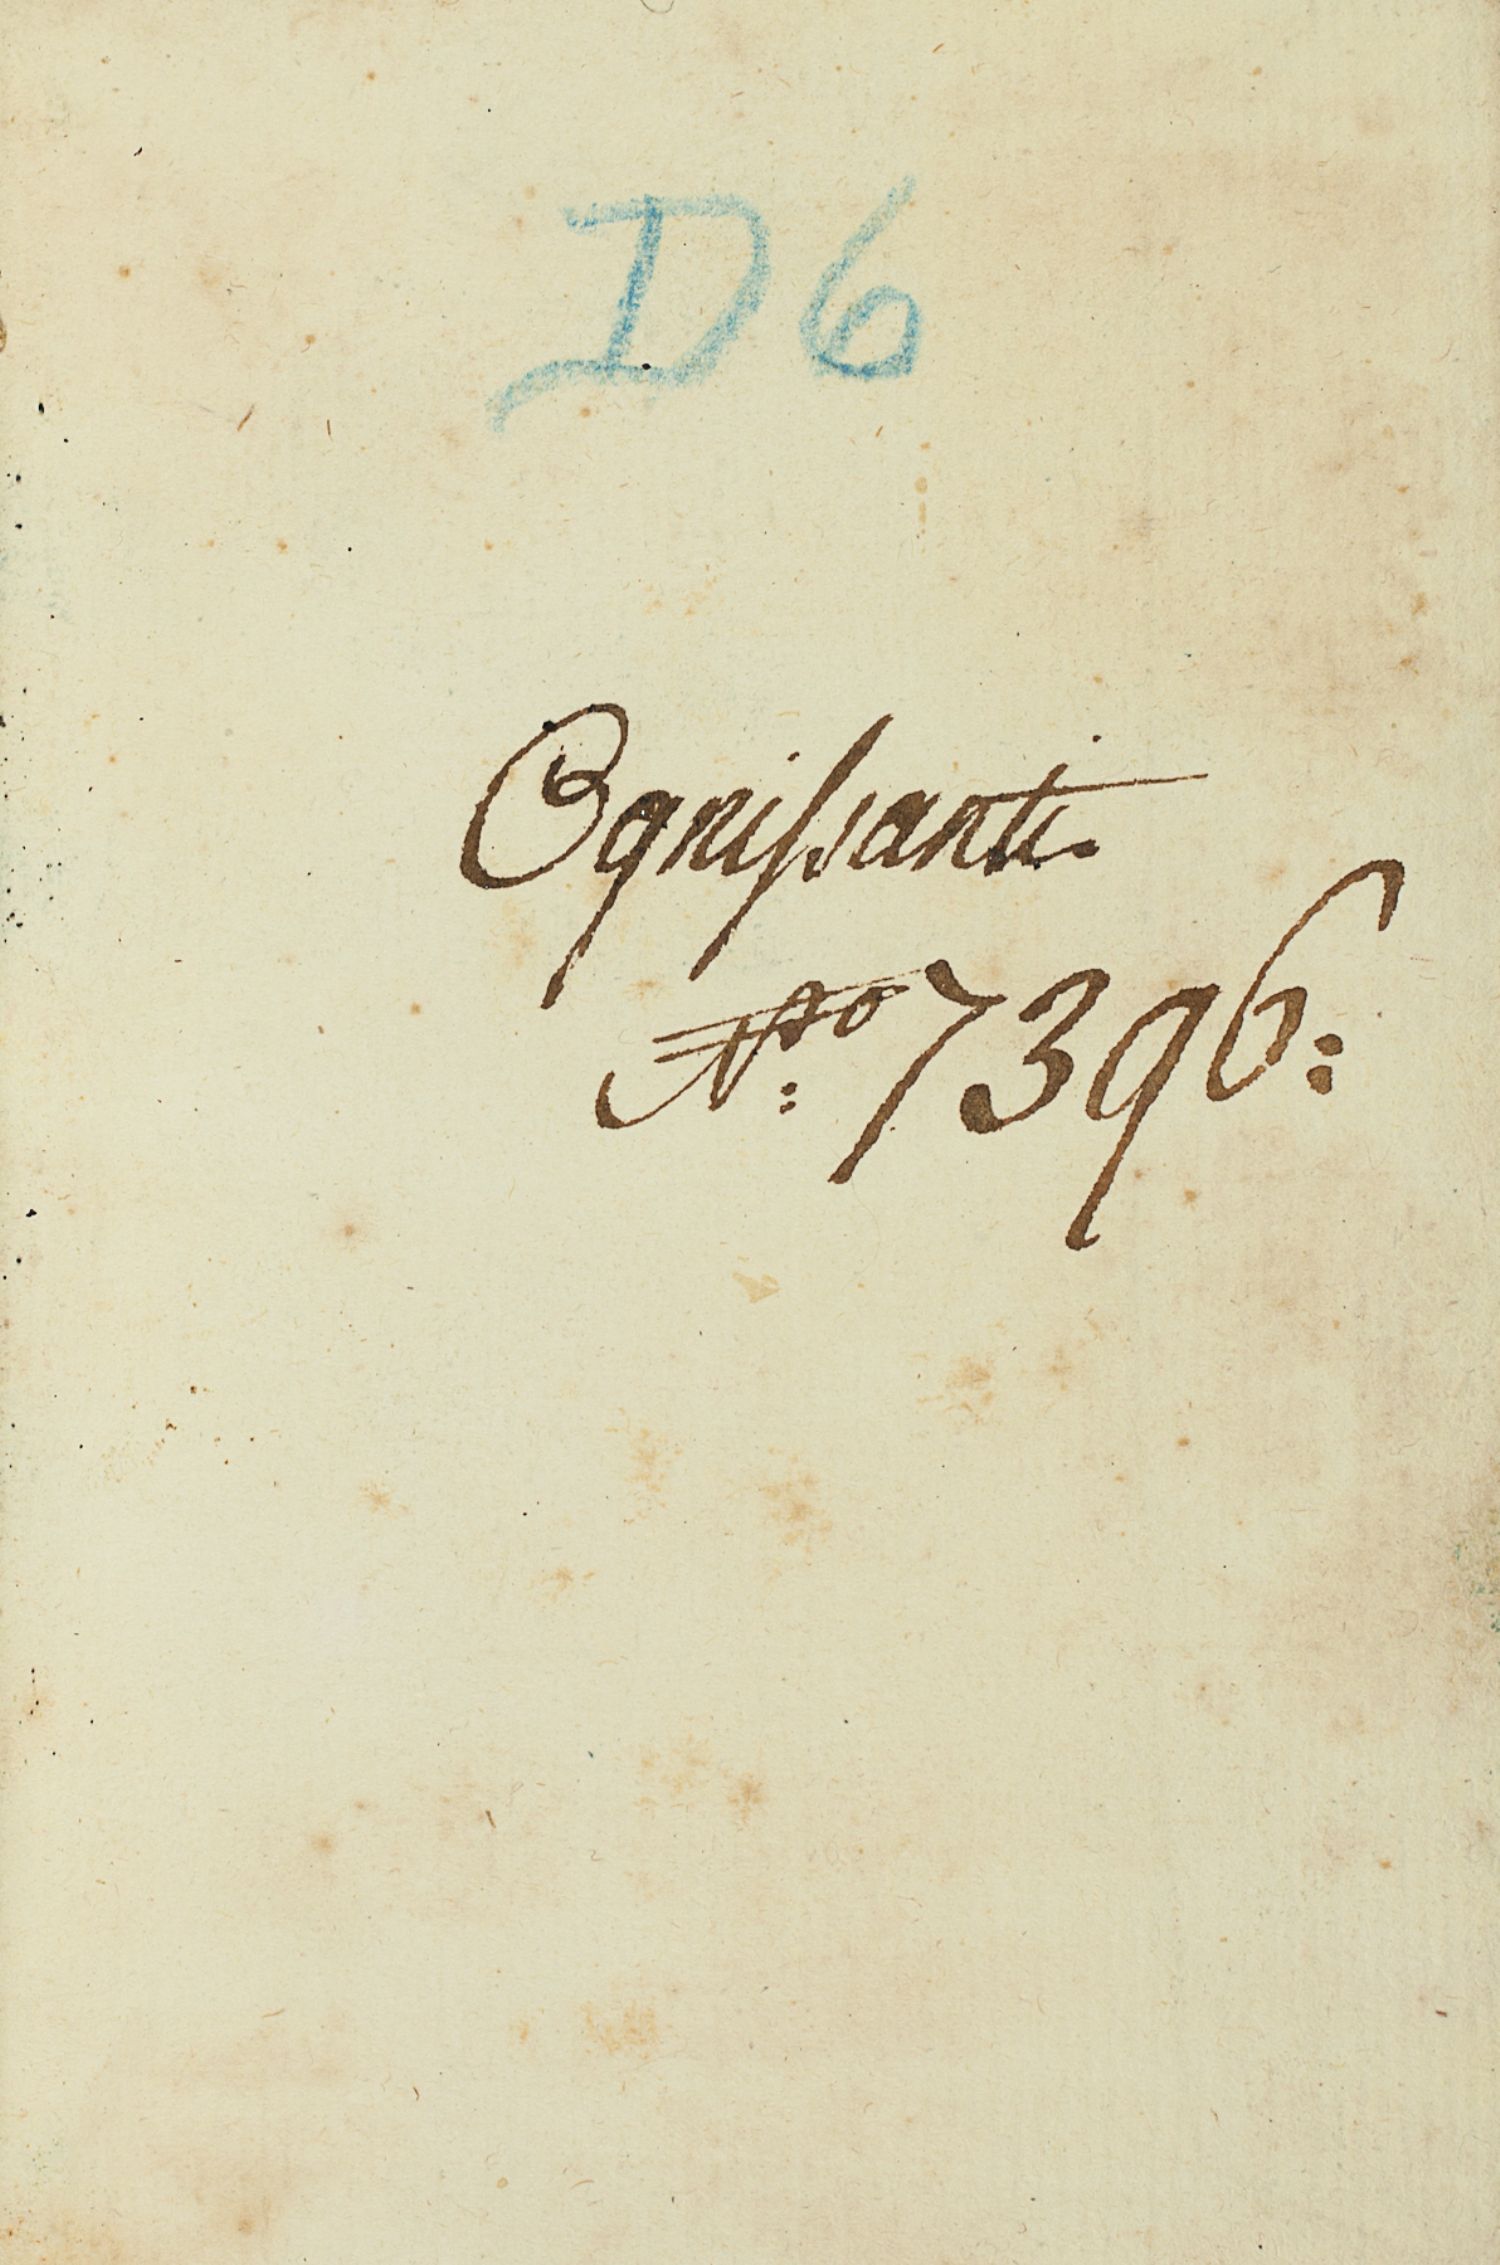 D6
Ognissanti.
No: 7396: